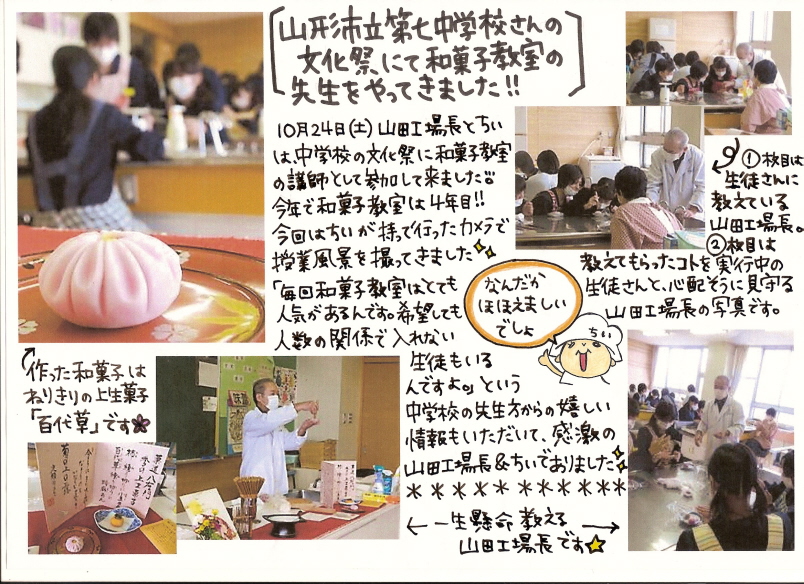 山形市立第七中学校さんの
文化祭にて和菓子教室の
先生をやってきました!!
10月24日(土)山田工場長とちい
は、中学校の文化祭に和菓子教室
の講師として参加して来ました
今年で和菓子教室は4年目!!
今回はちいが持って行ったカメラで
授業風景を撮ってきました
「毎回和菓子教室はとても
人気があるんです。希望しても
人数の関係で入れない
生徒もいる
んですよ。」という
中学校の先生方からの嬉しい
情報もいただいて、感激の
山田工場長&ちいでありました
**********
←一生懸命教える→
山田工場長です☆
①枚目は
生徒さんに
教えている
山田工場長。
②枚目は
教えてもらったコトを実行中の
生徒さんと、心配そうに見守る
山田工場長の写真です。
なんだか
ほほえましい
でしょ
ちい
作った和菓子は
ねりきりの上生菓子
「百代草」です